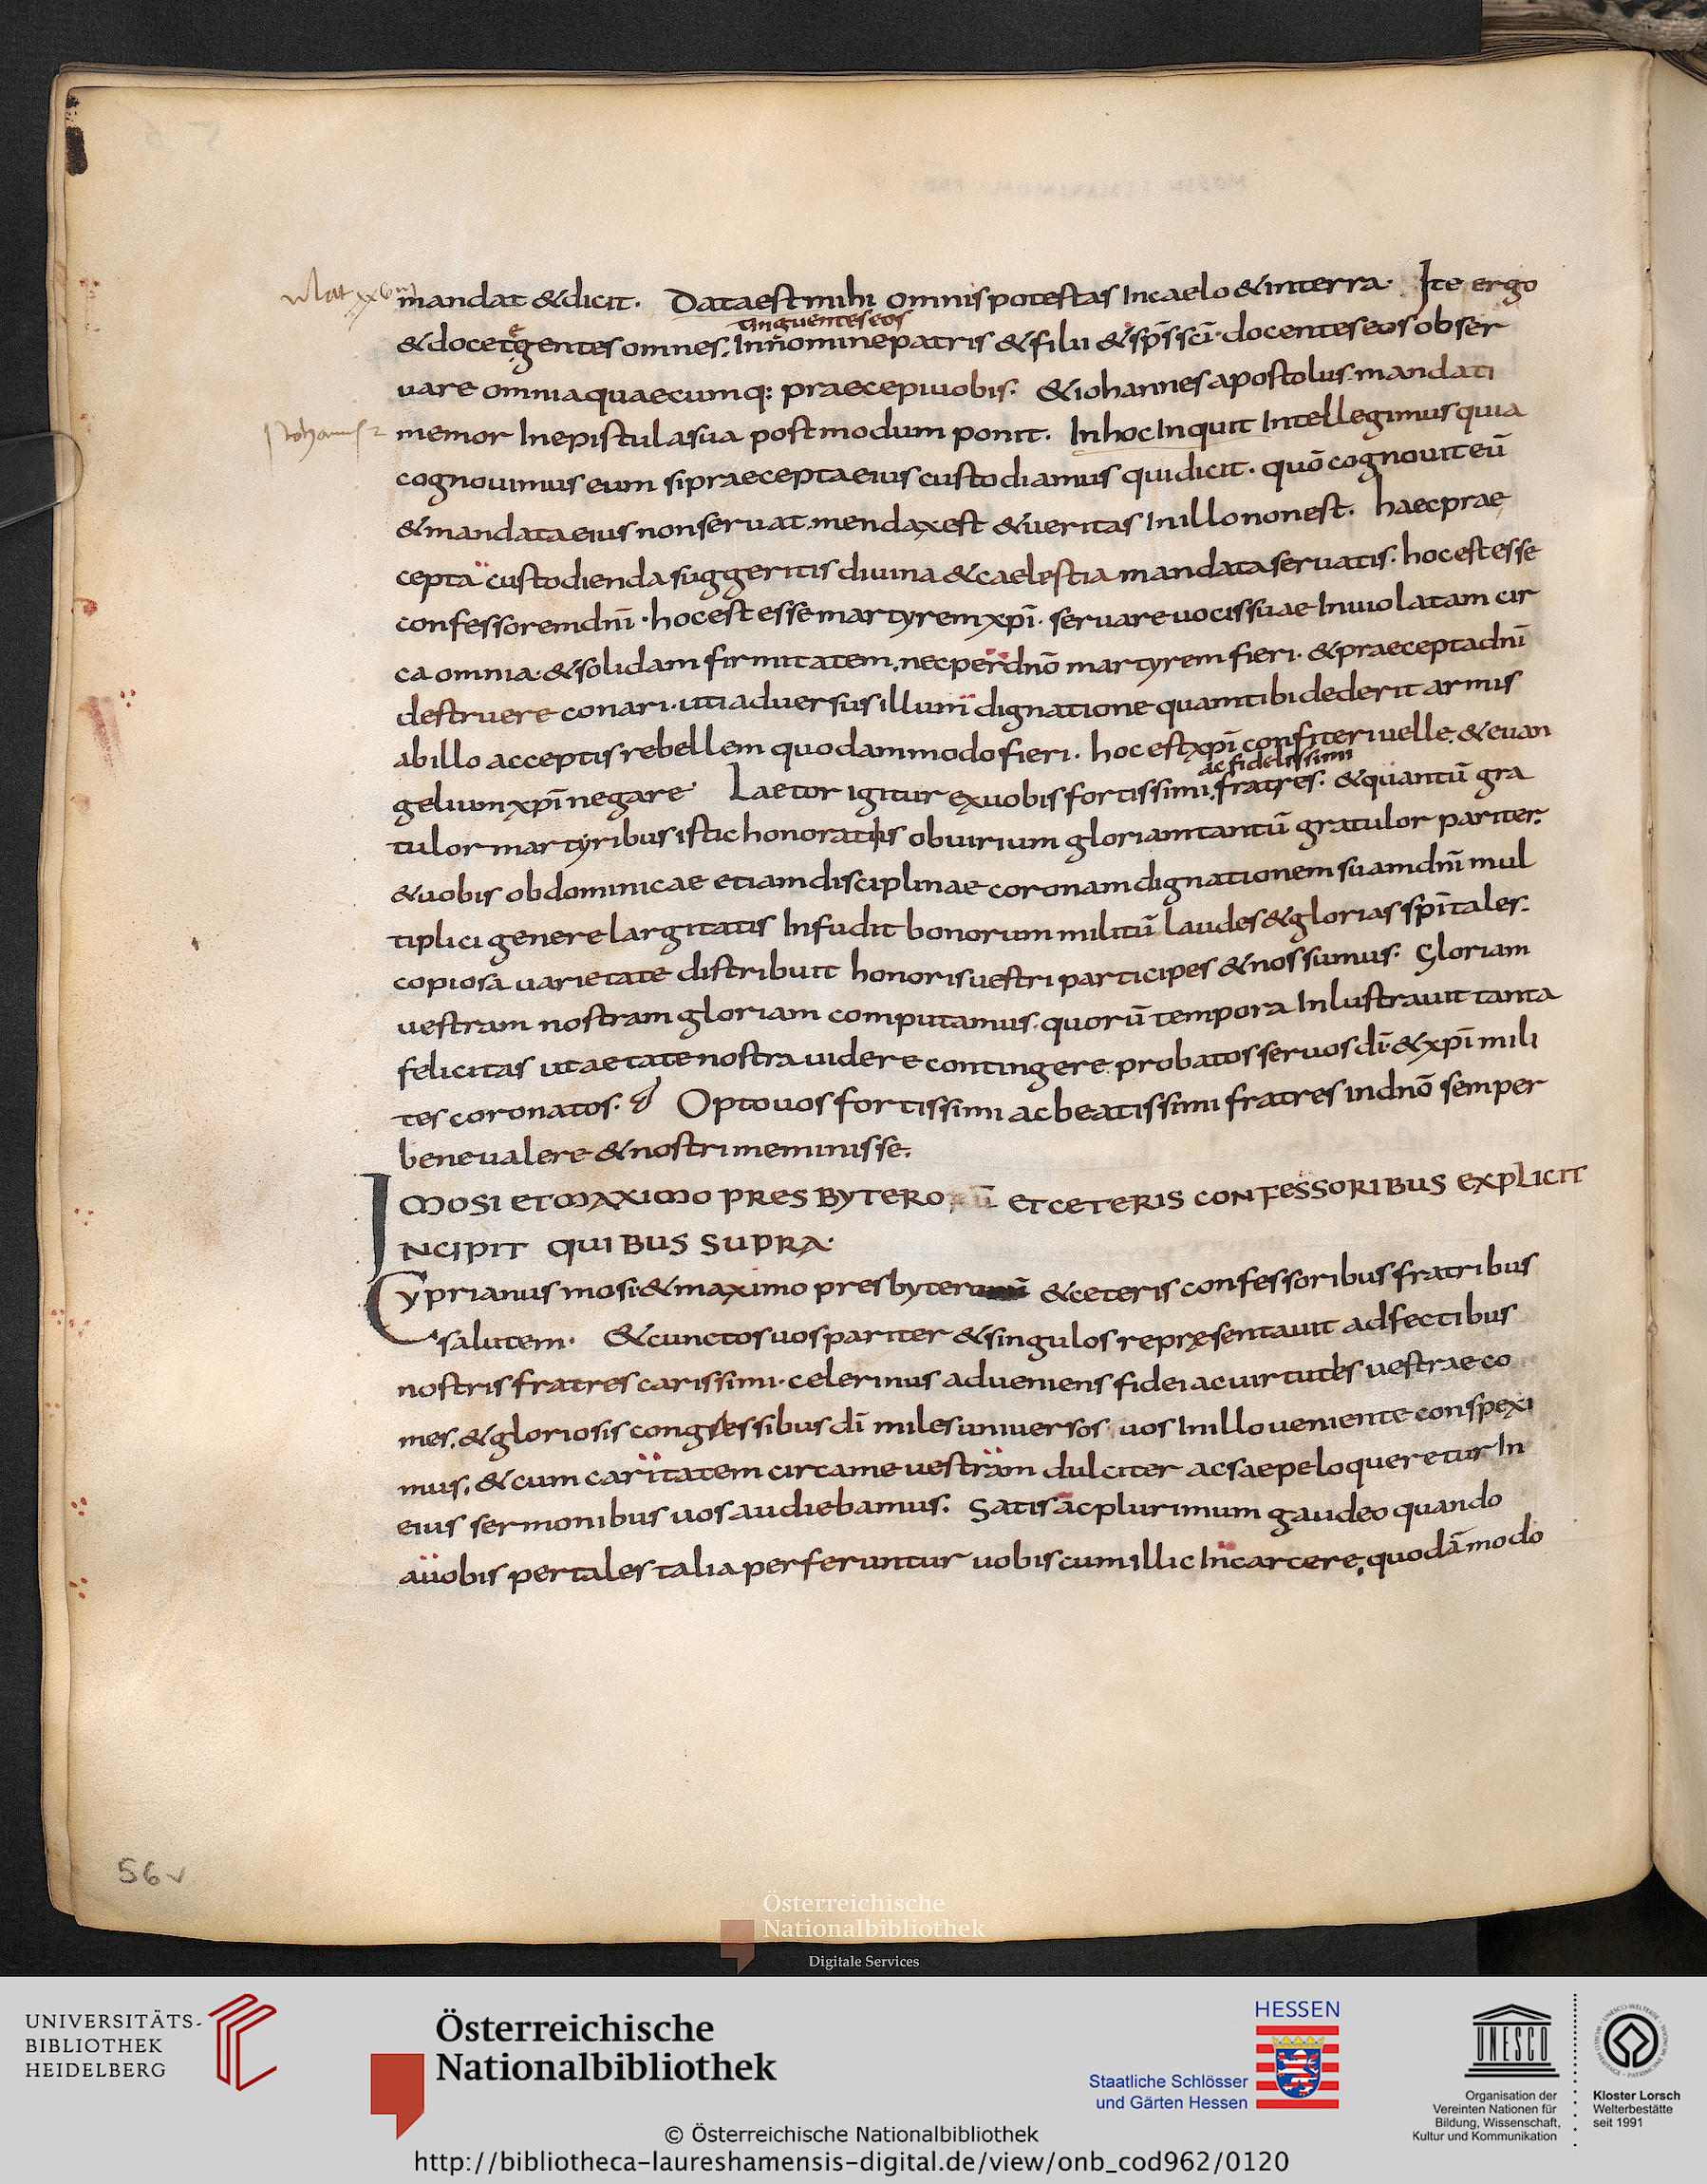 Mat xxviii
mandat & dicit. Data est mihi omnis potestas In caelo & in terra. Ite ergo
tinguentes eos
& docete gentes omnes. In nomine patris & filii & sp̄s sc̄i. docentes eos obser
uare omnia quaecumq: praecepi uobis. & iohannes apostolus mandati
Iohannis 2
memor In epistula sua postmodum ponit. In hoc Inquit Intellegimus quia
cognouimus eum si praecepta eius custodiamus qui dicit. quō cognouit eū
& mandata eius non seruat. mendax est & ueritas In illo non est. haec prae
cepta custodienda suggeritis diuina & caelestia mandata seruatis. hoc est esse
confessorem dn̄i. hoc est esse martyrem xp̄i. seruare uocis suae Inuiolatam cir
ca omnia. & solidam firmitatem. nec per dn̄o martyrem fieri. & praecepta dn̄i
destruere conari. uti aduersus illum dignatione quam tibi dederit armis
ab illo acceptis rebellem quodammodo fieri. hoc est xp̄i confiteri uelle. & euan
ac fidelissimi
gelium xp̄i negare. Laetor igitur ex uobis fortissimi. fratres. & quantū gra
tulor martyribus istic honoratis ob uirium gloriam tantū gratulor pariter.
& uobis ob dominicae etiam disciplinae coronam dignationem suam dn̄i mul
tiplici genere largitatis Infudit bonorum militū laudes & glorias sp̄itales.
copiosa uarietate distribuit honoris uestri participes & nos sumus. Gloriam
uestram nostram gloriam computamus. quorū tempora Inlustrauit tanta
felicitas ut aetate nostra uidere contingere probatos seruos dī. & xp̄i mili
tes coronatos. Opto uos fortissimi ac beatissimi fratres in dn̄o semper
bene ualere & nostri meminisse.
MOSI ET MAXIMO PRESBYTERORŪ ET CETERIS CONFESSORIBUS EXPLICIT
INCIPIT QUIBUS SUPRA.
Cyprianus mosi. & maximo presbyter & ceteris confessoribus fratribus
salutem. & cunctos uos pariter & singulos repręsentauit adfectibus
nostris fratres carissimi. celerinus adueniens fidei ac uirtutes uestrae co
mes. & gloriosis congressibus dī miles uniuersos uos In illo ueniente conspexi
mus. & cum caritatem circa me uestram dulciter ac saepe loqueretur In
eius sermonibus uos audiebamus. Satis ac plurimum gaudeo quando
a uobis per tales talia perferuntur uobiscum illic In carcere. quodāmodo
56v
Österreichische
Nationalbibliothek
Digitale Services
UNIVERSITÄTS-
BIBLIOTHEK
HEIDELBERG
Österreichische
Nationalbibliothek
HESSEN
Staatliche Schlösser
und Gärten Hessen
UNESCO
Organisation der
Vereinten Nationen für
Bildung, Wissenschaft,
Kultur und Kommunikation
Kloster Lorsch
Welterbestätte
seit 1991
© Österreichische Nationalbibliothek
http://bibliotheca-laureshamensis-digital.de/view/onb_cod962/0120